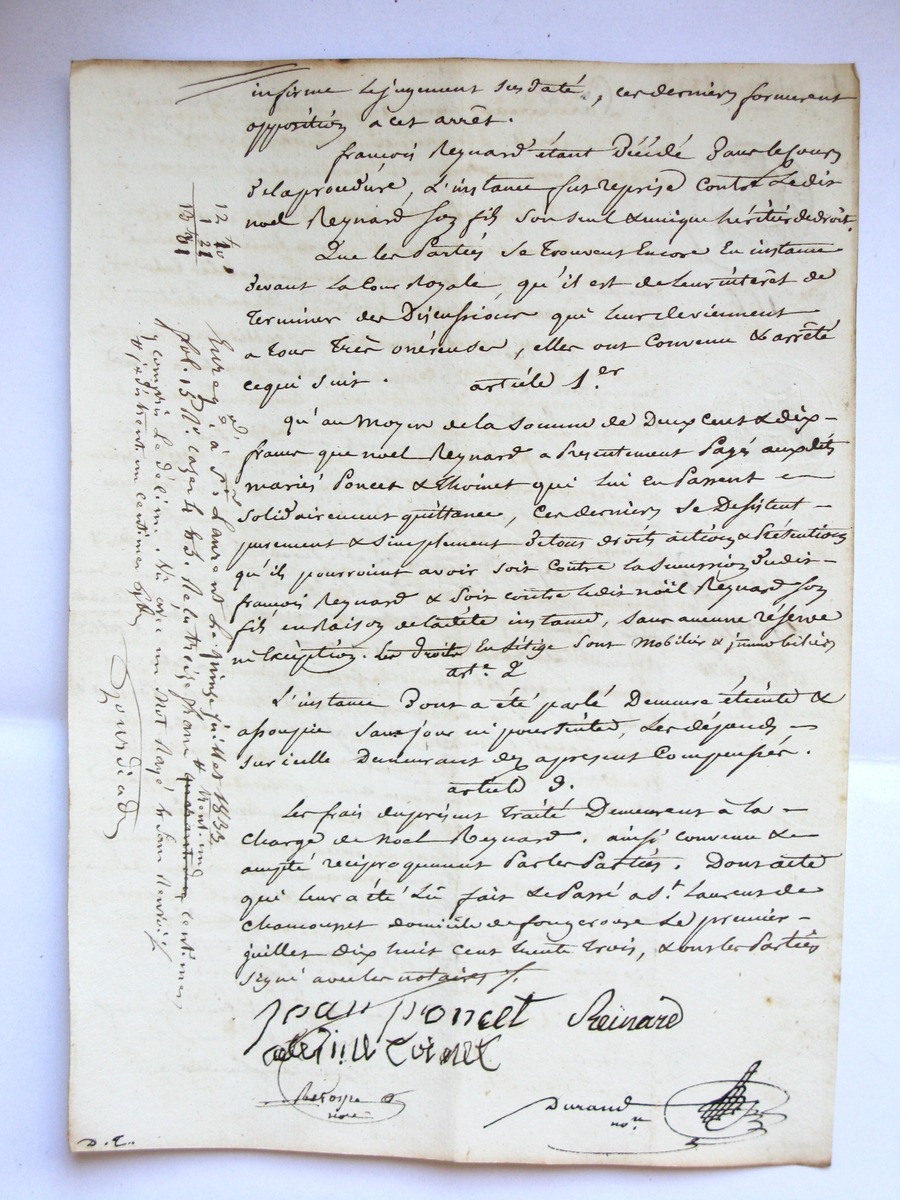 infirme le jugement susdaté, ces derniers formerent
opposition à cet arrêt.
françois Reynard étant Décédé Dans le cours
De la procédure, L'instance fut reprise contre Ledit
noel Reynard son fils son seul & unique héritier de droit.
Que les Parties se trouvent Encore En instance
Devant La Cour Royale, qu'il est de Leur intérêt de
Terminer des Discussions qui leur deviennent
a Tous Très onéreuses, elles ont Convenu & arrêté
ce qui suit.
article 1.er
qu'au Moyen de la Somme de Deux cent & dix
francs que noël Reynard a Presentement Payés aux dits
mariés Poncet & Thoinet qui lui en Passent
Solidairement quittance, Ces derniers Se Desistent
purement & simplement De tous droits actions & Prétentions
qu'ils pourroient avoir soit Contre la Succession Dudit
françois Reynard & Soit contre ledit noël Reynard son
fils en Raison de ladite instance, Sans aucune réserve
ni Exception. Les Droits En Litige Sont Mobiliers & immobiliers
art.e 2
L'instance Dont a été parlé Demeure éteinte &
assoupie Sans jour ni poursuite, Les dépends
sur icelle Demeurant dez apresent Compensés.
article 3.
Les frais du présent Traité Demeurent à la
charge de Noel Reynard. ainsi convenu &
accepté réciproquement Par les Parties. Dont acte
qui leur a été Lû fait & Passé a St. Laurent de
Chamousset domicile de fougerouse Le premier
juillet dix huit cent trente trois, & ont les Parties
signé avec les notaires
Jean Poncet Reinard
Coinet
Durand
no.re
D. T.
12 10
1 21
Enreg.é à St Laurent Le quinze juillet 1833
fol. 13 R.o cazes 4 & 3. Reçu treize francs quarante trente un centimes
y compris Le décime. Vu avec un Mot Rayé & Sans Renvois